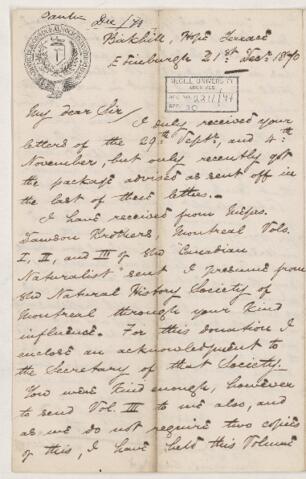 Dec /70
Birkhill, Hope Terrace
Edinburgh 21st Decr. 1870
McGILL UNIVERSITY
ARCHIVES
ACC. NO. 2211/44
REF.
My dear Sir
I duly received your
letters of the 29th Septr., and 4th
November, but only recently got
the package advised as sent off in
the last of these letters.
I have received from Messrs.
Dawson Brothers Montreal Vols.
I, II, and III of the "Canadian
Naturalist" sent I presume from
the Natural History Society of
Montreal through your kind
influence. For this donation I
enclose an acknowledgment to
the Secretary of that Society.
You were kind enough, however
to send Vol. III to me also, and
as we do not require two copies
of this, I have held this Volume